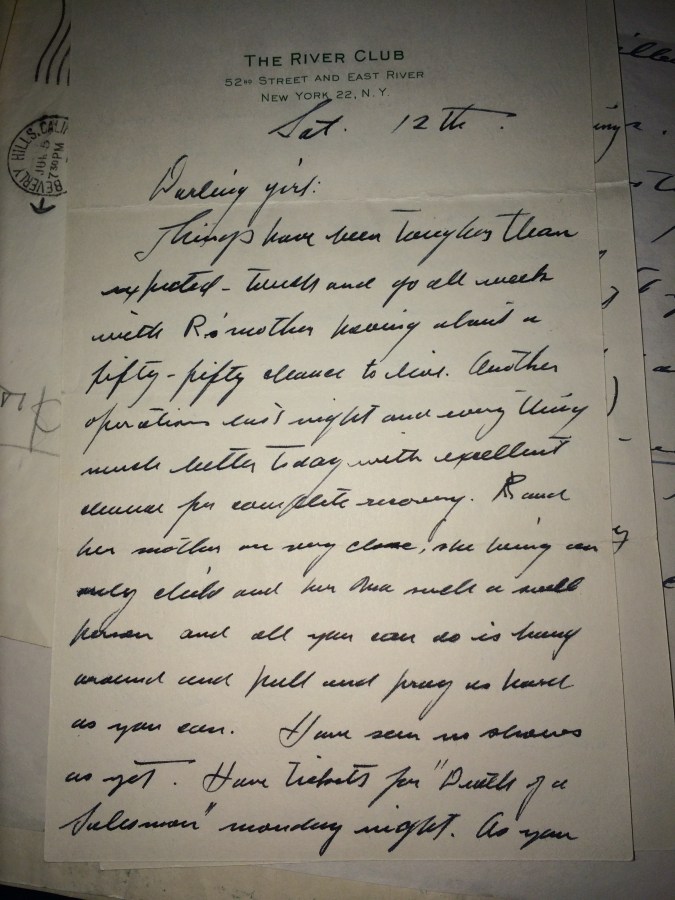 THE RIVER CLUB
52ND STREET AND EAST RIVER
NEW YORK 22, N.Y.
Sat. 12th.
BEVERLY HILLS, CALIF
730 PM
Darling girl:
Things have been tougher than
expected - touch and go all week
with R's mother having about a
fifty-fifty chance to live. Another
operation last night and everything
much better today with excellent
chance for complete recovery. R and
her mother are very close, she being an
only child and her Ma such a swell
person and all you can do is hang
around and pull and pray as hard
as you can. Have seen no shows
as yet. Have tickets for "Death of a
Salesman" monday night. As you